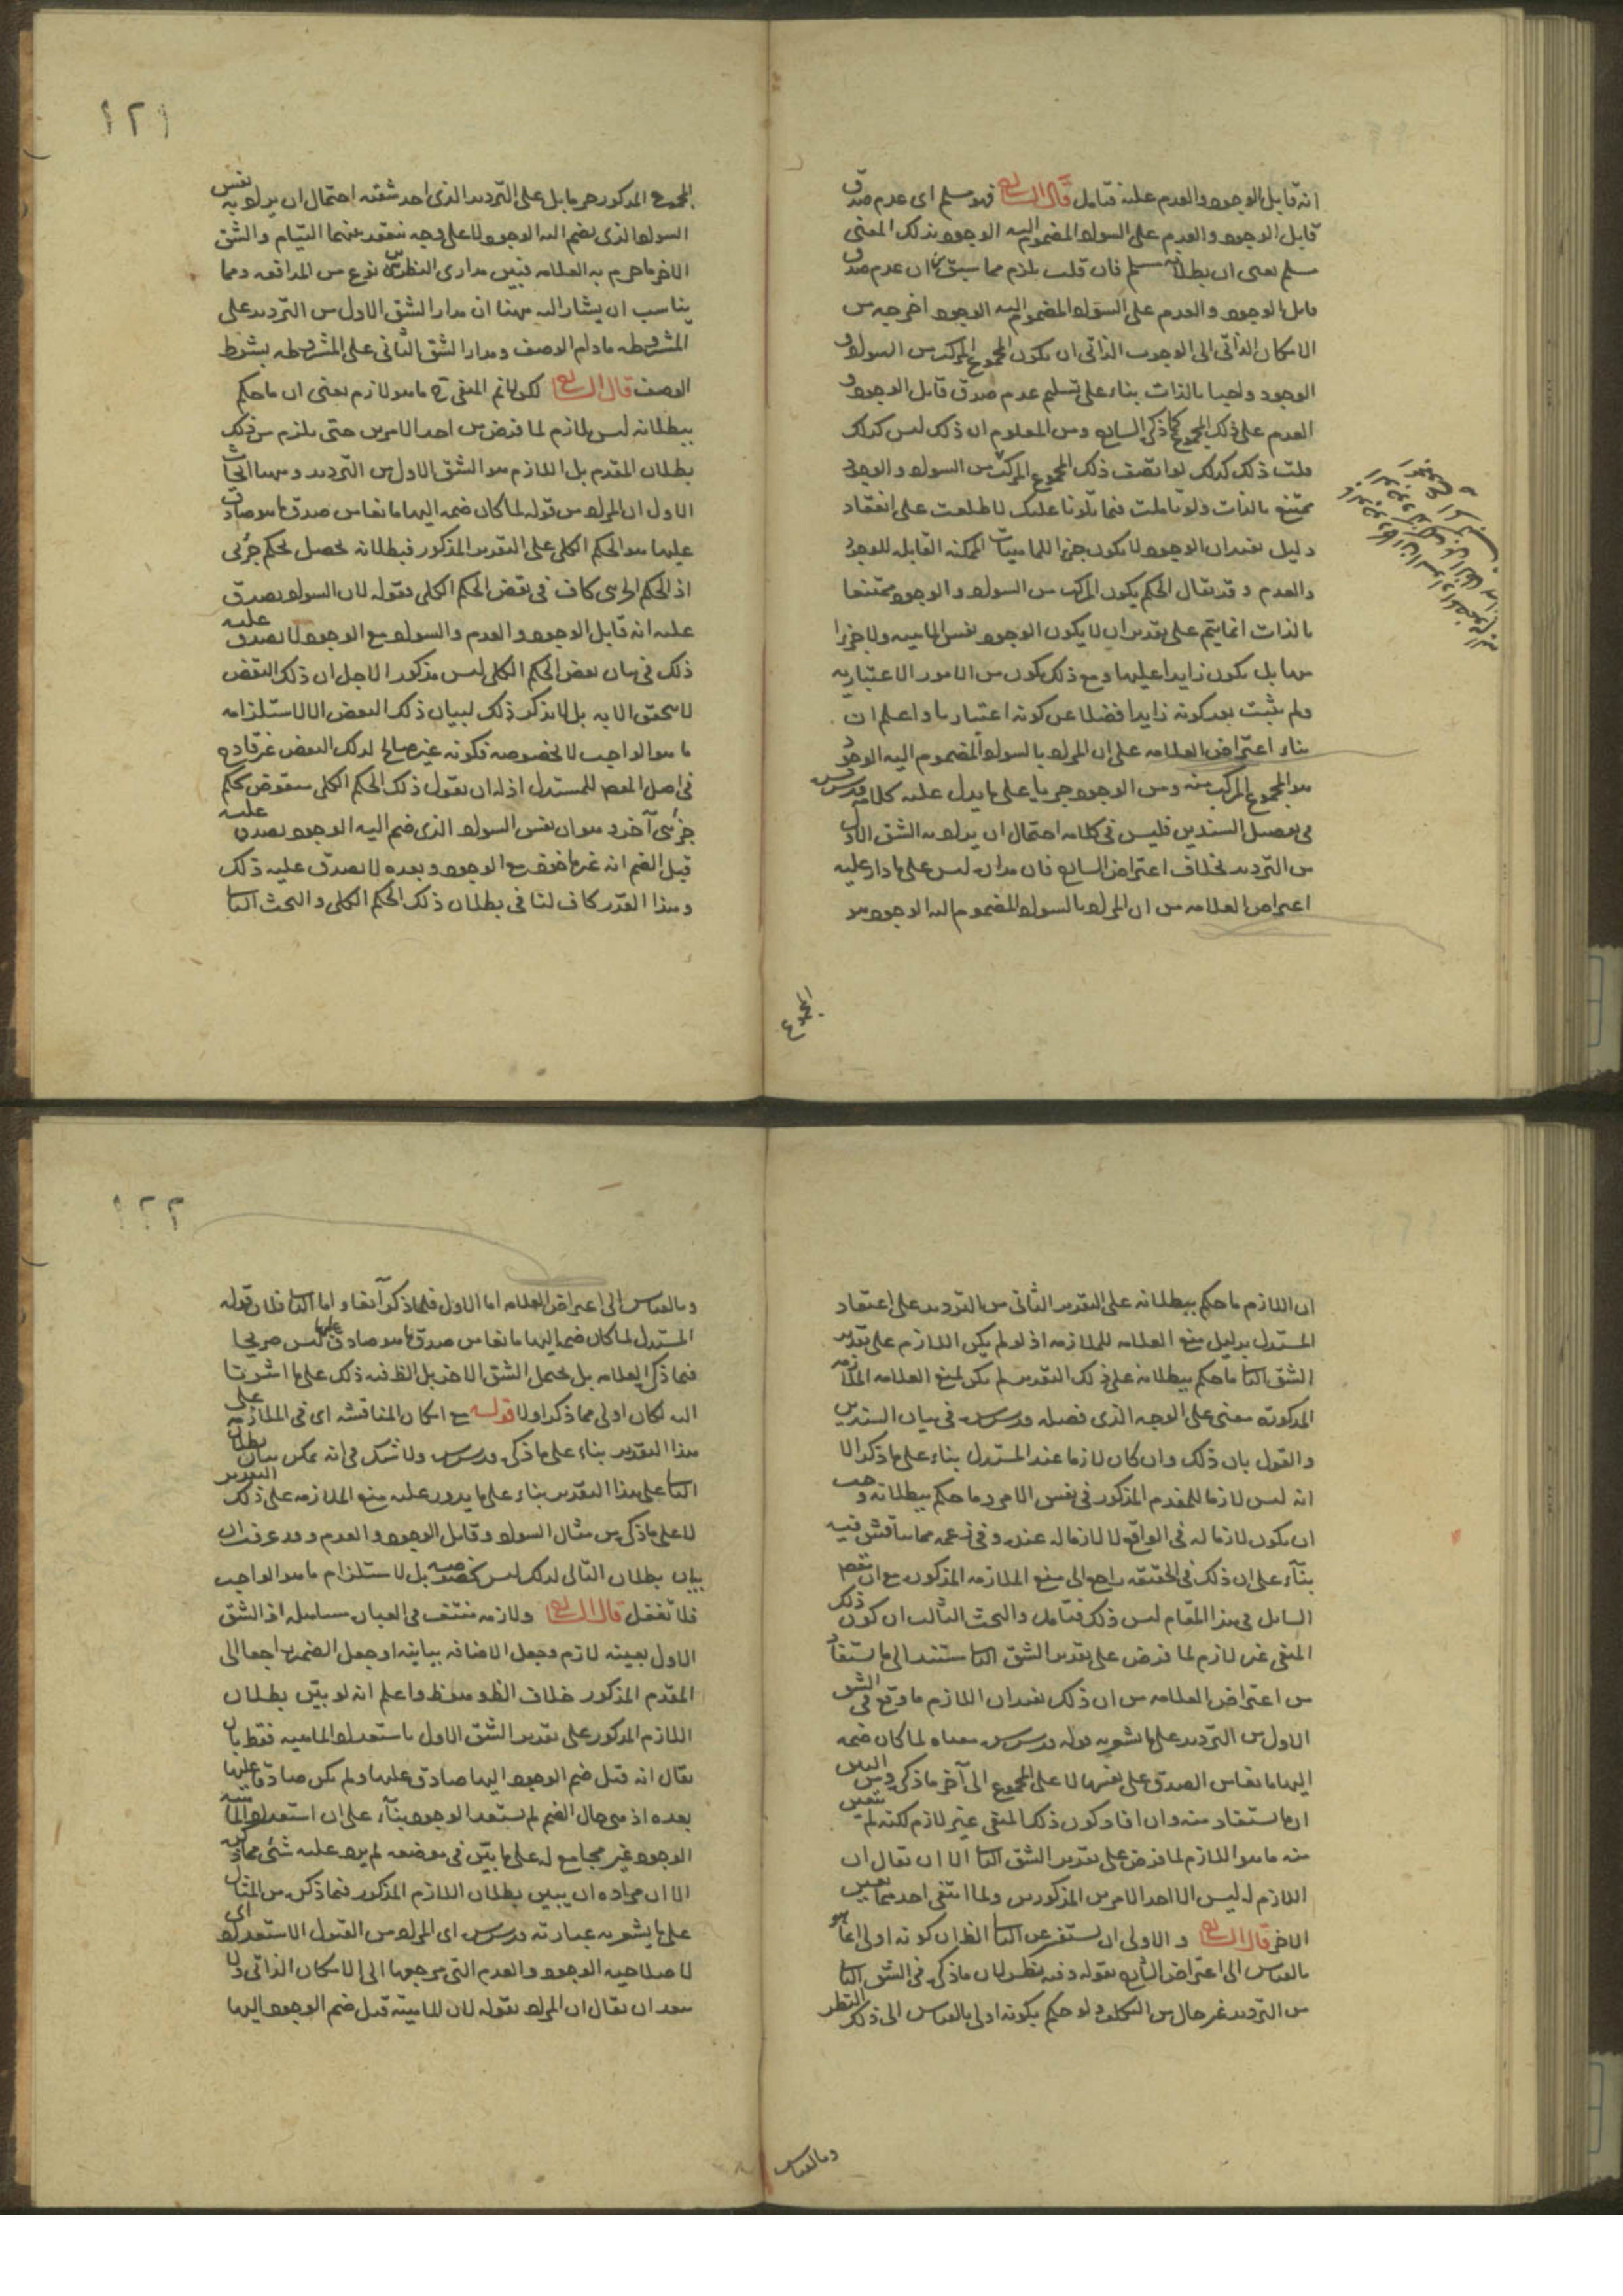 انه قابل الوجود والعدم عليه فتأمل قال الشارح فهو مسلم اى عدم صدق
قابل الوجود والعدم على السواد المضموم اليه الوجود بذلك المعنى
مسلم يعنى ان بطلانه مسلم فان قلت يلزم مما سبق ان عدم صدق
قابل الوجود والعدم على السواد المضموم اليه الوجود اخرجه من
الامكان الذاتى الى الوجوب الذاتى ان يكون المجموع المركب من السواد و
الوجود واجبا بالذات بناء على تسليم عدم صدق قابل الوجود و
العدم على ذلك المجموع كما ذكره الشارح ومن المعلوم ان ذلك ليس كذلك
قلت ذلك كذلك لو اتصف ذلك المجموع المركب من السواد والوجود
ممتنع بالذات ولو تأملت فيما تلونا عليك لاطلعت على انعقاد
دليل يفيد ان الوجود لا يكون جزءا للماهيات الممكنة القابلة للوجود
والعدم وقد يقال الحكم بكون المركب من السواد والوجود ممتنعا
بالذات انما يتم على تقدير ان لا يكون الوجود نفس الماهية ولا جزءا
منها بل يكون زايدا عليها ومع ذلك يكون من الامور الاعتبارية
ولم يثبت بعد كونه زايدا فضلا عن كونه اعتباريا واعلم ان
بناء اعتراض العلامه على ان المراد بالسواد المضموم اليه الوجود
هو المجموع المركب منه ومن الوجود جريا على ما يدل عليه كلامه قدس سره
فى تفصيل السندين فليس فى كلامه احتمال ان يراد به الشق الاول
من الترديد بخلاف اعتراض الشارح فان مداره ليس على ما دار عليه
اعتراض العلامه من ان المراد بالسواد المضموم اليه الوجود هو
المجموع
١٢١
المجموع المذكور حرما بل على الترديد الذى احد شقيه احتمال ان يراد به نفس
السواد الذى يضم اليه الوجود لا على وجه ينعقد بينهما التيام والشق
الاخر ما جزم به العلامه فبين مدارى النظرين نوع من المدافعه ومما
يناسب ان يشار اليه ههنا ان مدار الشق الاول من الترديد على
المشروطه مادام الوصف ومدار الشق الثانى على المشروطه بشرط
الوصف قال الشارح لكن لا نم المنفى ح ما هو لازم يعنى ان ما حكم
ببطلانه ليس بلازم لما فرض من احد الامرين حتى يلزم من ذلك
بطلان المقدم بل اللازم هو الشق الاول من الترديد وههنا ابحاث
الاول ان المراد من قوله لما كان ضمه اليها ما نعا من صدق ما هو صادق
عليها هو الحكم الكلى على التقدير المذكور فبطلانه يحصل بحكم جزئى
اذ الحكم الجزئى كاف فى نقض الحكم الكلى فقوله لان السواد يصدق
عليه انه قابل الوجود والعدم والسواد مع الوجود لا يصدق عليه
ذلك فى بيان نقض الحكم الكلى ليس مذكورا لاجل ان ذلك النقض
لا يتحقق الا به بل لا يذكر ذلك لبيان ذلك النقض الا لاستلزامه
ما هو الواجب لا لخصوصه فكونه غير صالح لذلك النقض غير قادح
فى اصل النقض للمستدل اذ له ان يقول ذلك الحكم الكلى منقوض بحكم
جزئى آخر وهو ان نفس السواد الذى ضم اليه الوجود يصدق عليه
قبل الضم انه غير مأخوذ مع الوجود وبعده لا يصدق عليه ذلك
وهذا القدر كاف لنا فى بطلان ذلك الحكم الكلى والبحث الثانى
ان اللازم ما حكم ببطلانه على التقدير الثانى من الترديد على اعتقاد
المستدل بدليل منع العلامه للملازمه اذ لو لم يكن اللازم على تقدير
الشق الثانى ما حكم ببطلانه على ذلك التقدير لم يكن لمنع العلامه الملازمه
المذكوره معنى على الوجه الذى فصله قدس سره فى بيان السندين
والقول بان ذلك وان كان لازما عند المستدل بناء على ما ذكر الا
انه ليس لازما للمقدم المذكور فى نفس الامر وما حكم ببطلانه وجب
ان يكون لازما له فى الواقع لا لازما له عنده وفى زعمه مما يناقش فيه
بناء على ان ذلك فى الحقيقه راجع الى منع الملازمه المذكوره مع ان مقصد
السائل فى هذا المقام ليس ذلك فتأمل والبحث الثالث ان كون ذلك
المنفى غير لازم لما فرض على تقدير الشق الثانى مستند الى ما يستفاد
من اعتراض العلامه من ان ذلك يفيد ان اللازم ما وقع فى الشق
الاول من الترديد على ما يشعر به قوله قدس سره معناه لما كان ضمه
اليها مانعا من الصدق على نفسها لا على المجموع الى آخر ما ذكره ومن البين
ان ما يستفاد منه وان افاد كون ذلك المنفى غير لازم لكنه لم يتعين
منه ما هو اللازم لما فرض على تقدير الشق الثانى الا ان يقال ان
اللازم له ليس الا احد الامرين المذكورين ولما انتفى احدهما تعين
الاخر قال الشارح والاولى ان يستفسر عن الثانى الظ ان كونه اولى انما هو
بالقياس الى اعتراض الشارح بقوله وفيه نظر لان ما ذكره فى الشق الثانى
من الترديد غير خال من التكلف ولو حكم بكونه اولى بالقياس الى ذلك النظر
وبالقياس
١٢٢
وبالقياس الى اعتراض العلامه اما الاول فلما ذكر آنفا واما الثانى فلان قوله
المستدل لما كان ضمها اليها مانعا من صدق ما هو صادق عليها ليس صريحا
فيما ذكره العلامه بل يحتمل الشق الاخر بل الظ فيه ذلك على ما اشرنا
اليه لكان اولى مما ذكر اولا قوله مع امكان المناقشه اى فى الملازمه على
هذا التقدير بناء على ما ذكره قدس سره ولا شك فى انه يمكن بيان بطلان
الثانى على هذا التقدير بناء على ما يدور عليه منع الملازمه على ذلك التقدير
لا على ما ذكره من مثال السواد وقابل الوجود والعدم وقد عرفت ان
بيان بطلان التالى لذلك ليس بخصوصه بل لاستلزام ما هو الواجب
فلا تغفل قال الشارح ولازمه منتف فى العباره مساهله اذ الشق
الاول بعينه لازم وجعل الاضافه بيانيه او جعل الضمير راجعا الى
المقدم المذكور خلاف الظ وهو ظ واعلم انه لو بيّن بطلان
اللازم المذكور على تقدير الشق الاول باستعداد الماهيه فقط بان
يقال انه قبل ضم الوجود اليها صادق عليها ولم يكن صادقا عليها
بعده اذ هى حال الضم لم يستعد الوجود بناء على ان استعداد الماهيه
الوجود غير مجامع له على ما بيّن فى موضعه لم يرد عليه شئ مما ذكر
الا ان مراده ان يبين بطلان اللازم المذكور فيما ذكره من المثال
على ما يشعر به عبارته قدس سره اى المراد من القبول الاستعداد اى
لا صلاحية الوجود والعدم التى مرجعها الى الامكان الذاتى ولا
يبعد ان يقال ان المراد بقوله لان الماهيه قبل ضم الوجود اليها